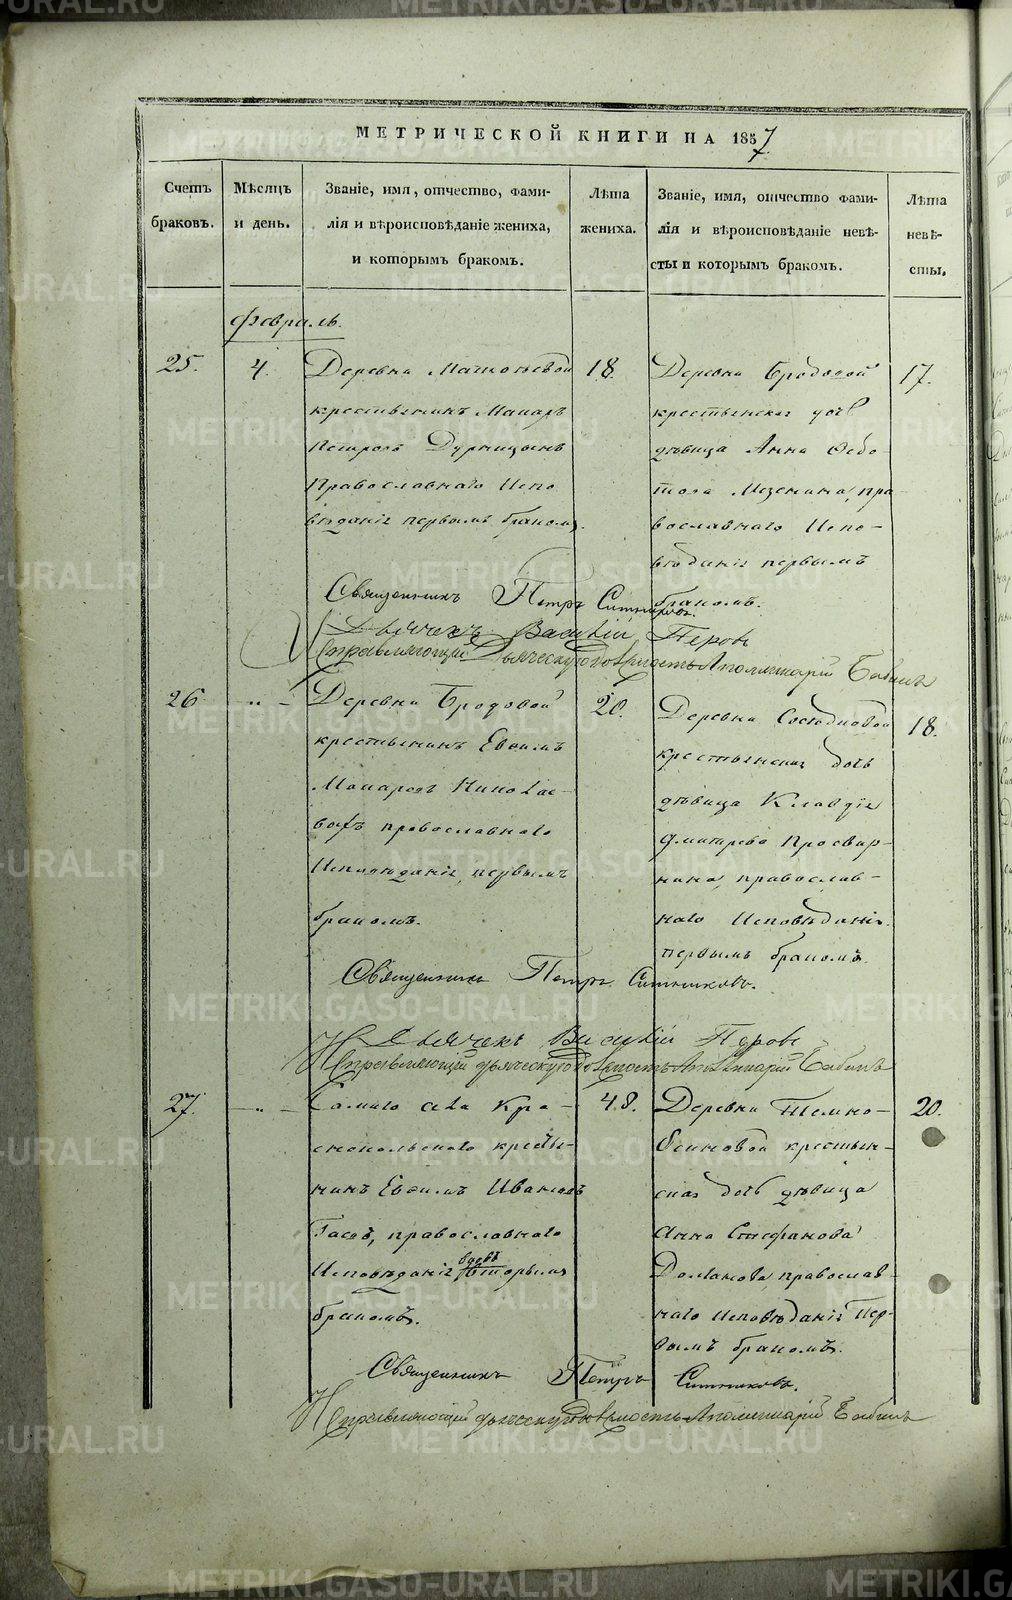 МЕТРИЧЕСКОЙ КНИГИ НА 1857
Счетъ браковъ.
Мѣсяцъ и день.
Званіе, имя, отчество, фами-
лія и вѣроисповѣданіе жениха,
и которымъ бракомъ.
Лѣта жениха.
Званіе, имя, отчество фами-
лія и вѣроисповѣданіе невѣ-
сты и которымъ бракомъ.
Лѣта невѣ-
сты.
Февраль.
25.
4.
Деревни
крестьянинъ Макаръ
Петровъ
Православнаго Испо
вѣданія первымъ бракомъ.
18.
Деревни Бродовой
крестьянская дочь
дѣвица Анна Ѳедо-
това Мезенина, пра-
вославнаго Испо-
вѣданія первымъ
бракомъ.
17.
Священникъ Петръ Ситниковъ.
Дьячекъ Василій Перовъ
Исправляющій Дьяческую должность Аполлинарій Бабинъ
26
" -
Деревни Бродовой
крестьянинъ Евѳимъ
Макаровъ Никола-
евъ православнаго
Исповѣданія, первымъ
бракомъ.
20.
Деревни
крестьянская дочь
дѣвица Клавдія
Дмитрева Просвир-
нина, православ-
наго Исповѣданія
первымъ бракомъ.
18.
Священникъ Петръ Ситниковъ.
Дьячекъ Василій Перовъ
Исправляющій дьяческую должность Аполлинарій Бабинъ
27.
" -
Самаго села Кра-
снопольскаго кресть-
янинъ Евѳимъ Ивановъ
православнаго
Исповѣданія вдовъ вторымъ
бракомъ.
48.
Деревни Темно-
Осиновой крестьян-
ская дочь дѣвица
Анна Стефанова
православ-
наго Исповѣданія Пер-
вымъ бракомъ.
20.
Священникъ Петръ Ситниковъ.
Исправляющій дьяческую должность Аполлинарій Бабинъ
METRIKI.GASO-URAL.RU